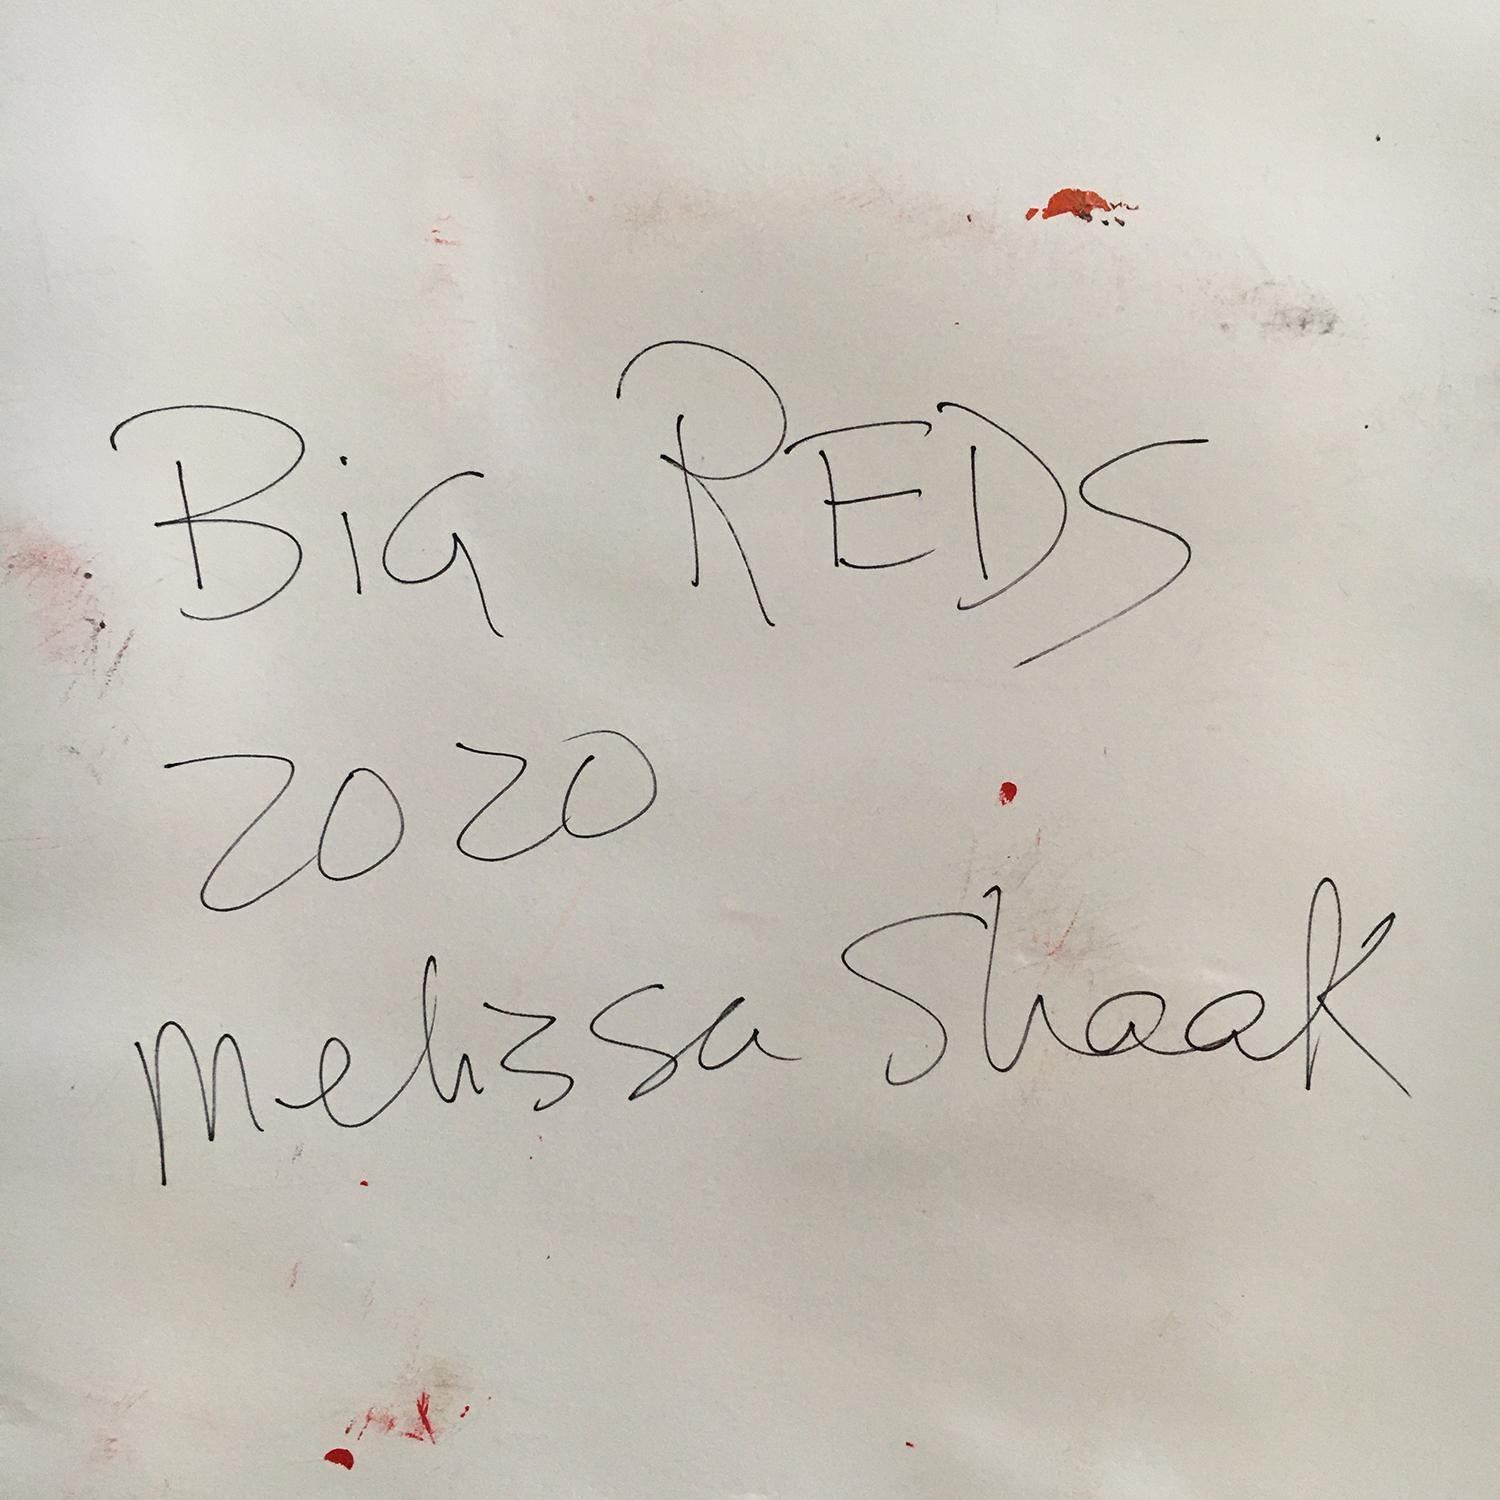 BiG REDS
2020
Melissa Shaak